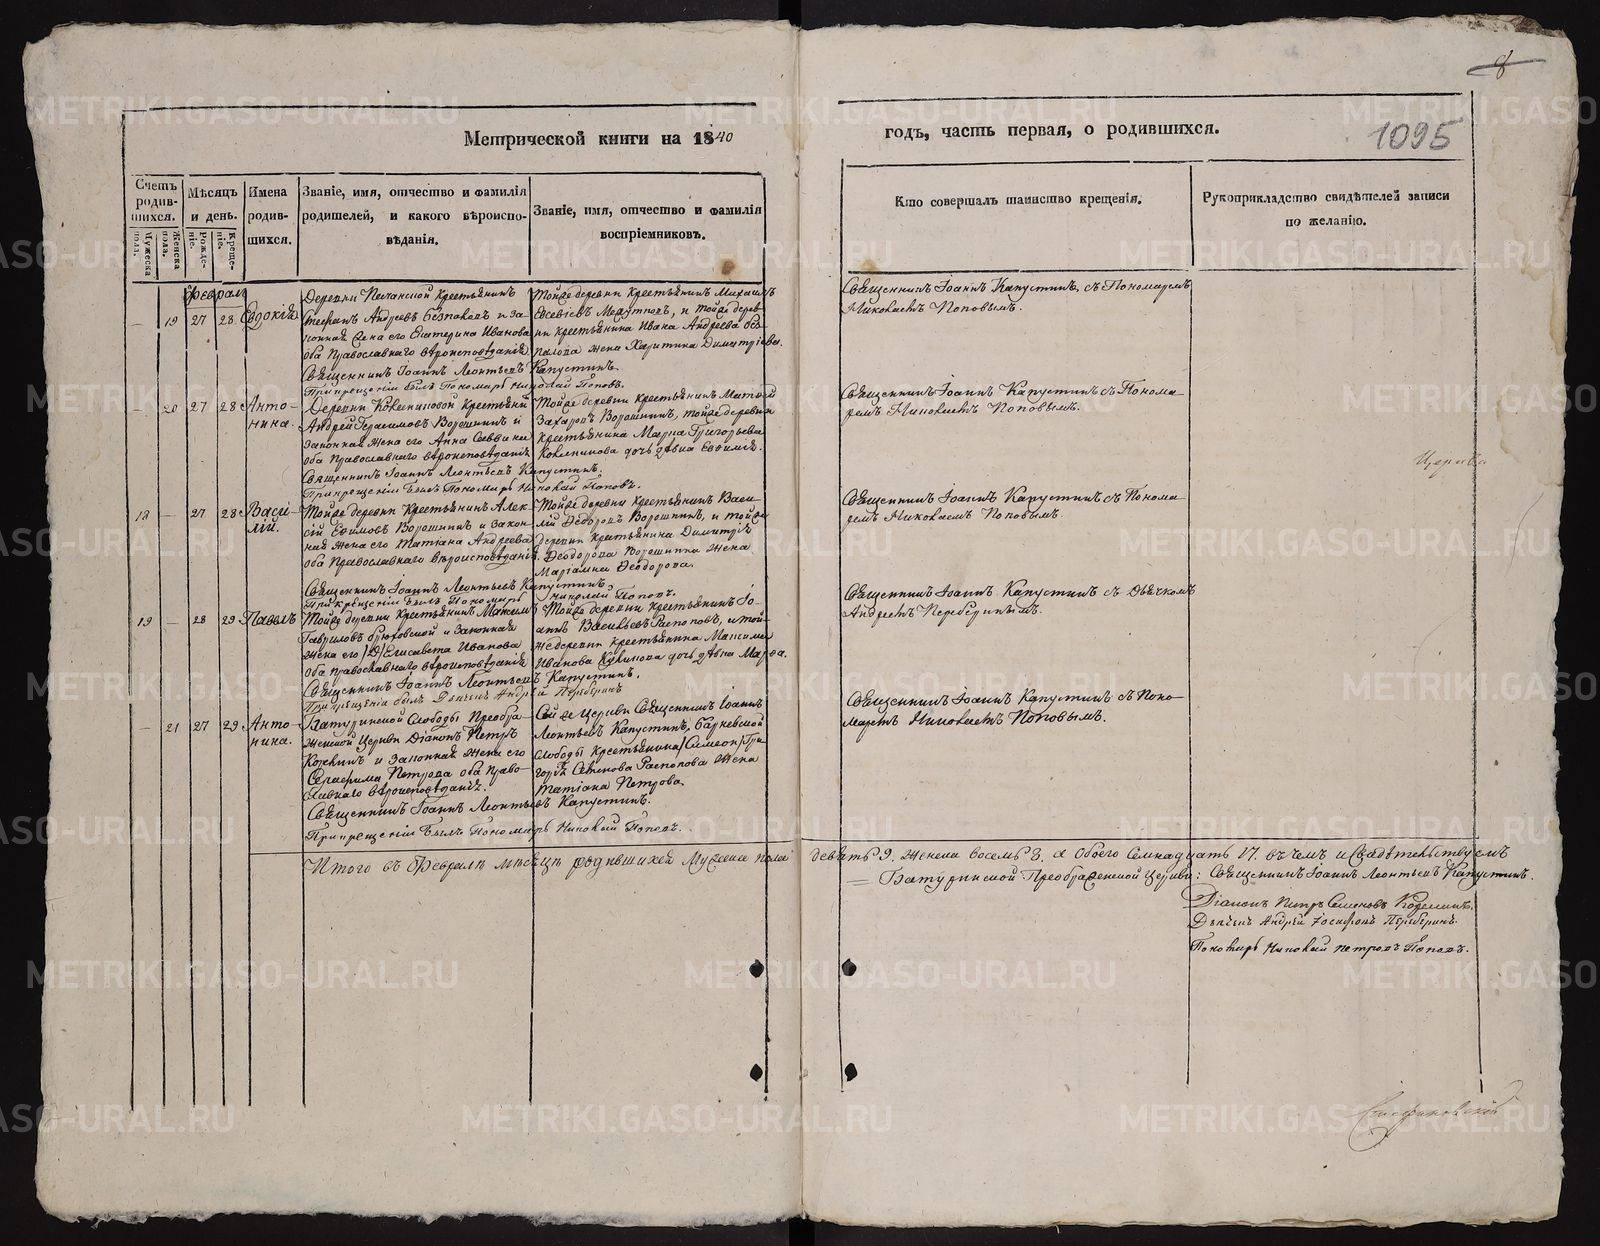 8
1095
Метрической книги на 1840
годъ, часть первая, о родившихся.
Счетъ родившихся.
Мужеска пола.
Женска пола.
Мѣсяцъ и день.
Рожденіе.
Крещеніе.
Имена родившихся.
Званіе, имя, отчество и фамилія родителей, и какого вѣроисповѣданія.
Званіе, имя, отчество и фамилія воспріемниковъ.
Кто совершалъ таинство крещенія.
Рукоприкладство свидѣтелей записи по желанію.
Феврал
— 19 27 28 Евдокія
Деревни Песчанской Крестьянинъ
Стефанъ Андреевъ Безпаловъ и за-
конная жена его Екатерина Иванова
оба Православнаго вѣроисповѣданія
Тойже деревни Крестьянинъ Михаилъ
и тойже дерев-
ни крестьянина Ивана Андреева Без-
палова жена Харитина Димитріева.
Священникъ Іоаннъ Леонтьевъ Капустинъ.
При крещеніи былъ Пономарь Николай Поповъ.
Священникъ Іоаннъ Капустинъ, съ Пономаремъ
Николаемъ Поповымъ.
— 20 27 28 Анто-
нина.
Андрей Герасимовъ Ворошнинъ и
законная жена его Анна Саввина
оба Православнаго вѣроисповѣданія
Тойже деревни крестьянинъ Матвій
Захаровъ Ворошнинъ, тойже деревни
крестьянина Марка Григорьева
дочь дѣвица Евфимія.
Священникъ Іоаннъ Леонтьевъ Капустинъ.
При крещеніи былъ Пономарь Николай Поповъ.
Священникъ Іоаннъ Капустинъ съ Понома-
ремъ Николаемъ Поповымъ.
18 — 27 28 Васи-
лій.
Тойже деревни Крестьянинъ Алек-
сій Ефимовъ Ворошнинъ и закон-
ная жена его Татіана Андреева
оба Православнаго вѣроисповѣданія.
Тойже деревни крестьянинъ Васи-
лій Ѳедоровъ Ворошнинъ, и тойже
деревни крестьянина Димитрія
Ѳеодорова Ворошнина жена
Маріамна Ѳеодорова.
Священникъ Іоаннъ Леонтьевъ Капустинъ
При крещеніи былъ Пономарь Николай Поповъ.
Священникъ Іоаннъ Капустинъ съ Понома-
ремъ Николаемъ Поповымъ.
19 — 28 29 Павелъ
Тойже деревни Крестьянинъ Максимъ
Гавриловъ и законная
жена его Елисавета Иванова
оба православнаго вѣроисповѣданія
Тойже деревни крестьянинъ Іо-
аннъ Васильевъ Распоповъ, и той-
жедеревни крестьянина Максима
Иванова дочь дѣвица
Священникъ Іоаннъ Леонтьевъ Капустинъ.
При крещеніи былъ Дьячекъ Андрей Переберинъ
Священникъ Іоаннъ Капустинъ съ Дьячкомъ
Андреемъ Переберинымъ.
— 21 27 29 Анто-
нина.
Батуринской Слободы Преобра-
женской Церкви Діаконъ Петръ
и законная жена его
Серафима Петрова оба право-
славнаго вѣроисповѣданія.
Сей же Церкви Священникъ Іоаннъ
Леонтьевъ Капустинъ, Барневской
слободы Крестьянина Симеон Гри-
Распопова жена
Татіана Петрова.
Священникъ Іоаннъ Леонтьевъ Капустинъ.
При крещеніи былъ Пономарь Николай Поповъ.
Священникъ Іоаннъ Капустинъ съ Поно-
маремъ Николаемъ Поповымъ.
Итого въ Февралѣ мѣсяцѣ родившихся Мужеска пола девять 9. женска восемь 8. а обоего Семнадцать 17. въ чемъ и свидѣтельствуемъ
Батуринской Преображенской Церкви: Священникъ Іоаннъ Леонтьевъ Капустинъ.
Діаконъ Петръ Семеновъ
Дьячекъ Андрей Переберинъ.
Пономарь Николай Петровъ Поповъ.
METRIKI.GASO-URAL.RU